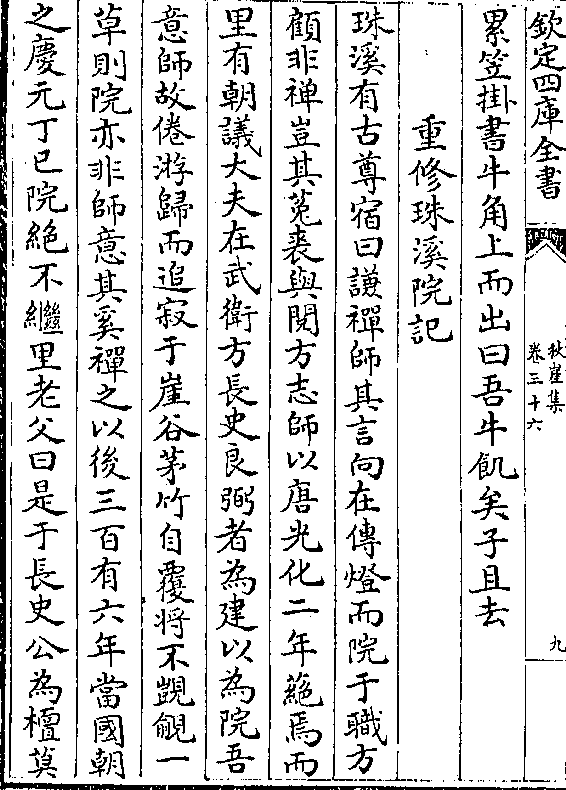 欽定四庫全書
秋崖集
卷三十六
九
累笠掛書牛角上而出曰吾牛飢矣子且去
重修珠溪院記
珠溪有古尊宿曰謙禪師其言向在傳燈而院于職方
顧非禅豈其菟裘與閱方志師以唐光化二年蕝焉而
里有朝議大夫在武衛方長史良弼者為建以為院吾
意師故倦游歸而追寂于崖谷茅竹自覆将不覬覦一
草則院亦非師意其奚禪之以後三百有六年當國朝
之慶元丁巳院絶不繼里老父曰是于長史公為檀莫